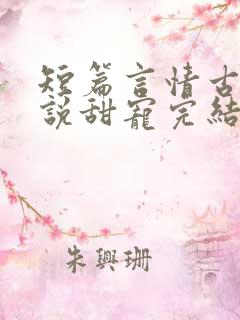 短篇言情古
說甜寵完結
朱興珊